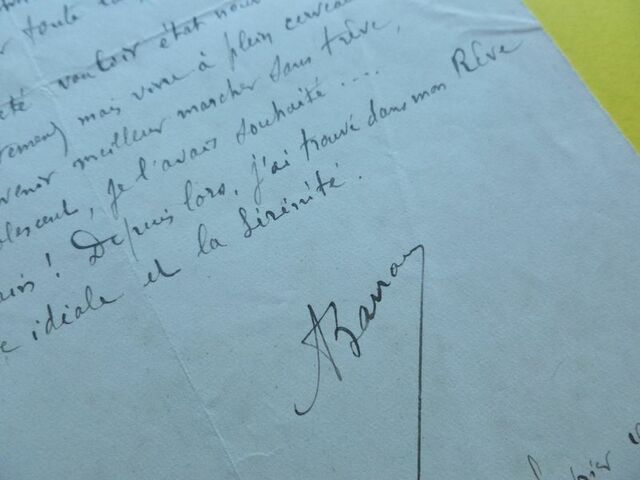 r toute
eté vouloir état nou
rement) mais vivre à plein cerveau
venir meilleur marcher sans trêve,
olescent, je l'avais souhaité ....
ais! Depuis lors, j'ai trouvé dans mon Rêve
e idéale et la Sérénité.
ABarra